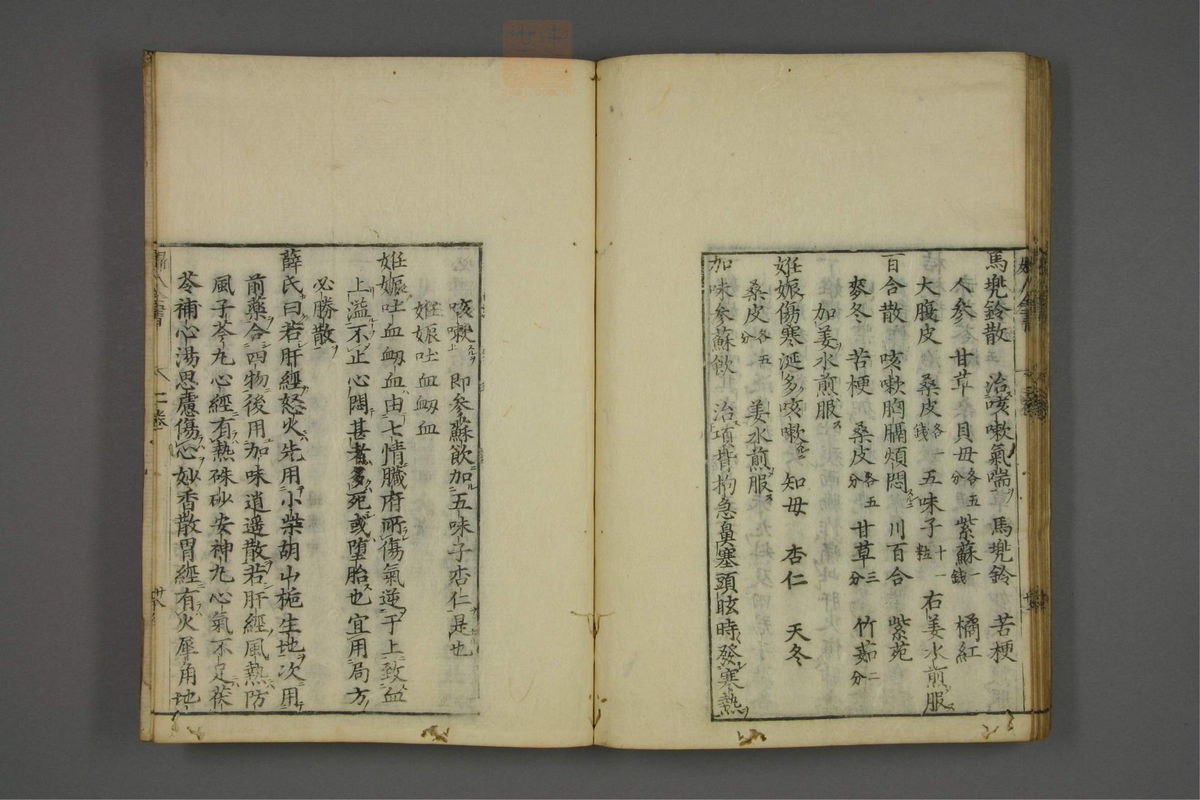 馬兜鈴散 治咳嗽氣喘 馬兜鈴 苦梗
人參 甘草 貝母各五分 紫蘇一錢 橘紅
大腹皮 桑皮各一錢 五味子十一粒 右姜水煎服
百合散 咳嗽胸膈煩悶 川百合 紫菀
麥冬 苦梗 桑皮各五分 甘草三分 竹茹二分
加姜水煎服
姙娠傷寒涎多咳嗽 知母 杏仁 天冬
桑皮各五分 姜水煎服
加味參蘇飲 治項背拘急鼻塞頭眩時發寒熱
咳嗽 即參蘇飲加五味子杏仁是也
姙娠吐血衂血
姙娠吐血衂血由七情臟府所傷氣逆于上致血
上溢不止心悶甚者多死或墮胎也宜用局方
必勝散
薛氏曰若肝經怒火先用小柴胡山栀生地次用
前藥合四物後用加味逍遥散若肝經風熱防
風子芩丸心經有熱硃砂安神丸心氣不足茯
苓補心湯思慮傷心妙香散胃經有火犀角地
二卷